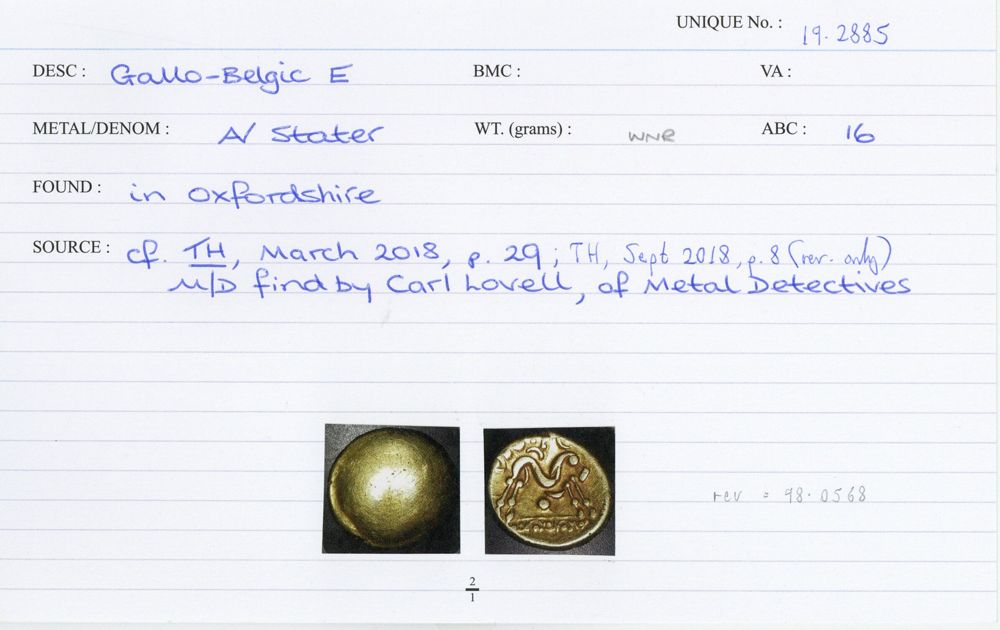 UNIQUE No. : 19.2885
DESC : Gallo-Belgic E BMC : VA :
METAL/DENOM : A/ Stater WT. (grams) : WNR ABC : 16
FOUND : in Oxfordshire
SOURCE : cf. TH, March 2018, p. 29 ; TH, Sept 2018, p. 8 (rev. only)
M/D find by Carl Lovell, of Metal Detectives
rev = 98.0568
2
1